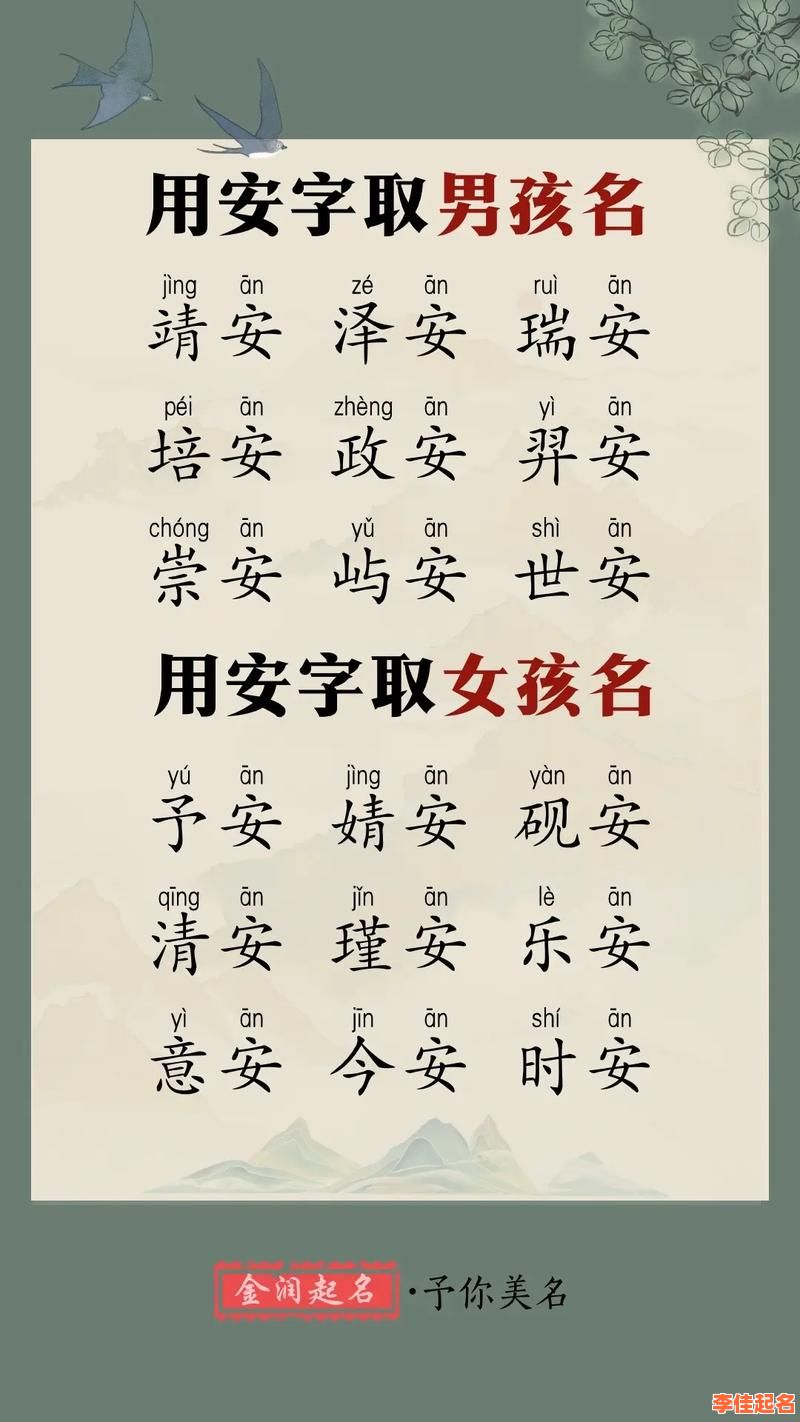 用安字取男孩名
jìng ān zé ān ruì ān
靖安 泽安 瑞安
péi ān zhèng ān yì ān
培安 政安 羿安
chóng ān yǔ ān shì ān
崇安 屿安 世安
用安字取女孩名
yú ān jìng ān yàn ān
予安 婧安 砚安
qīng ān jǐn ān lè ān
清安 瑾安 乐安
yì ān jīn ān shí ān
意安 今安 时安
金润起名·予你美名
李佳起名